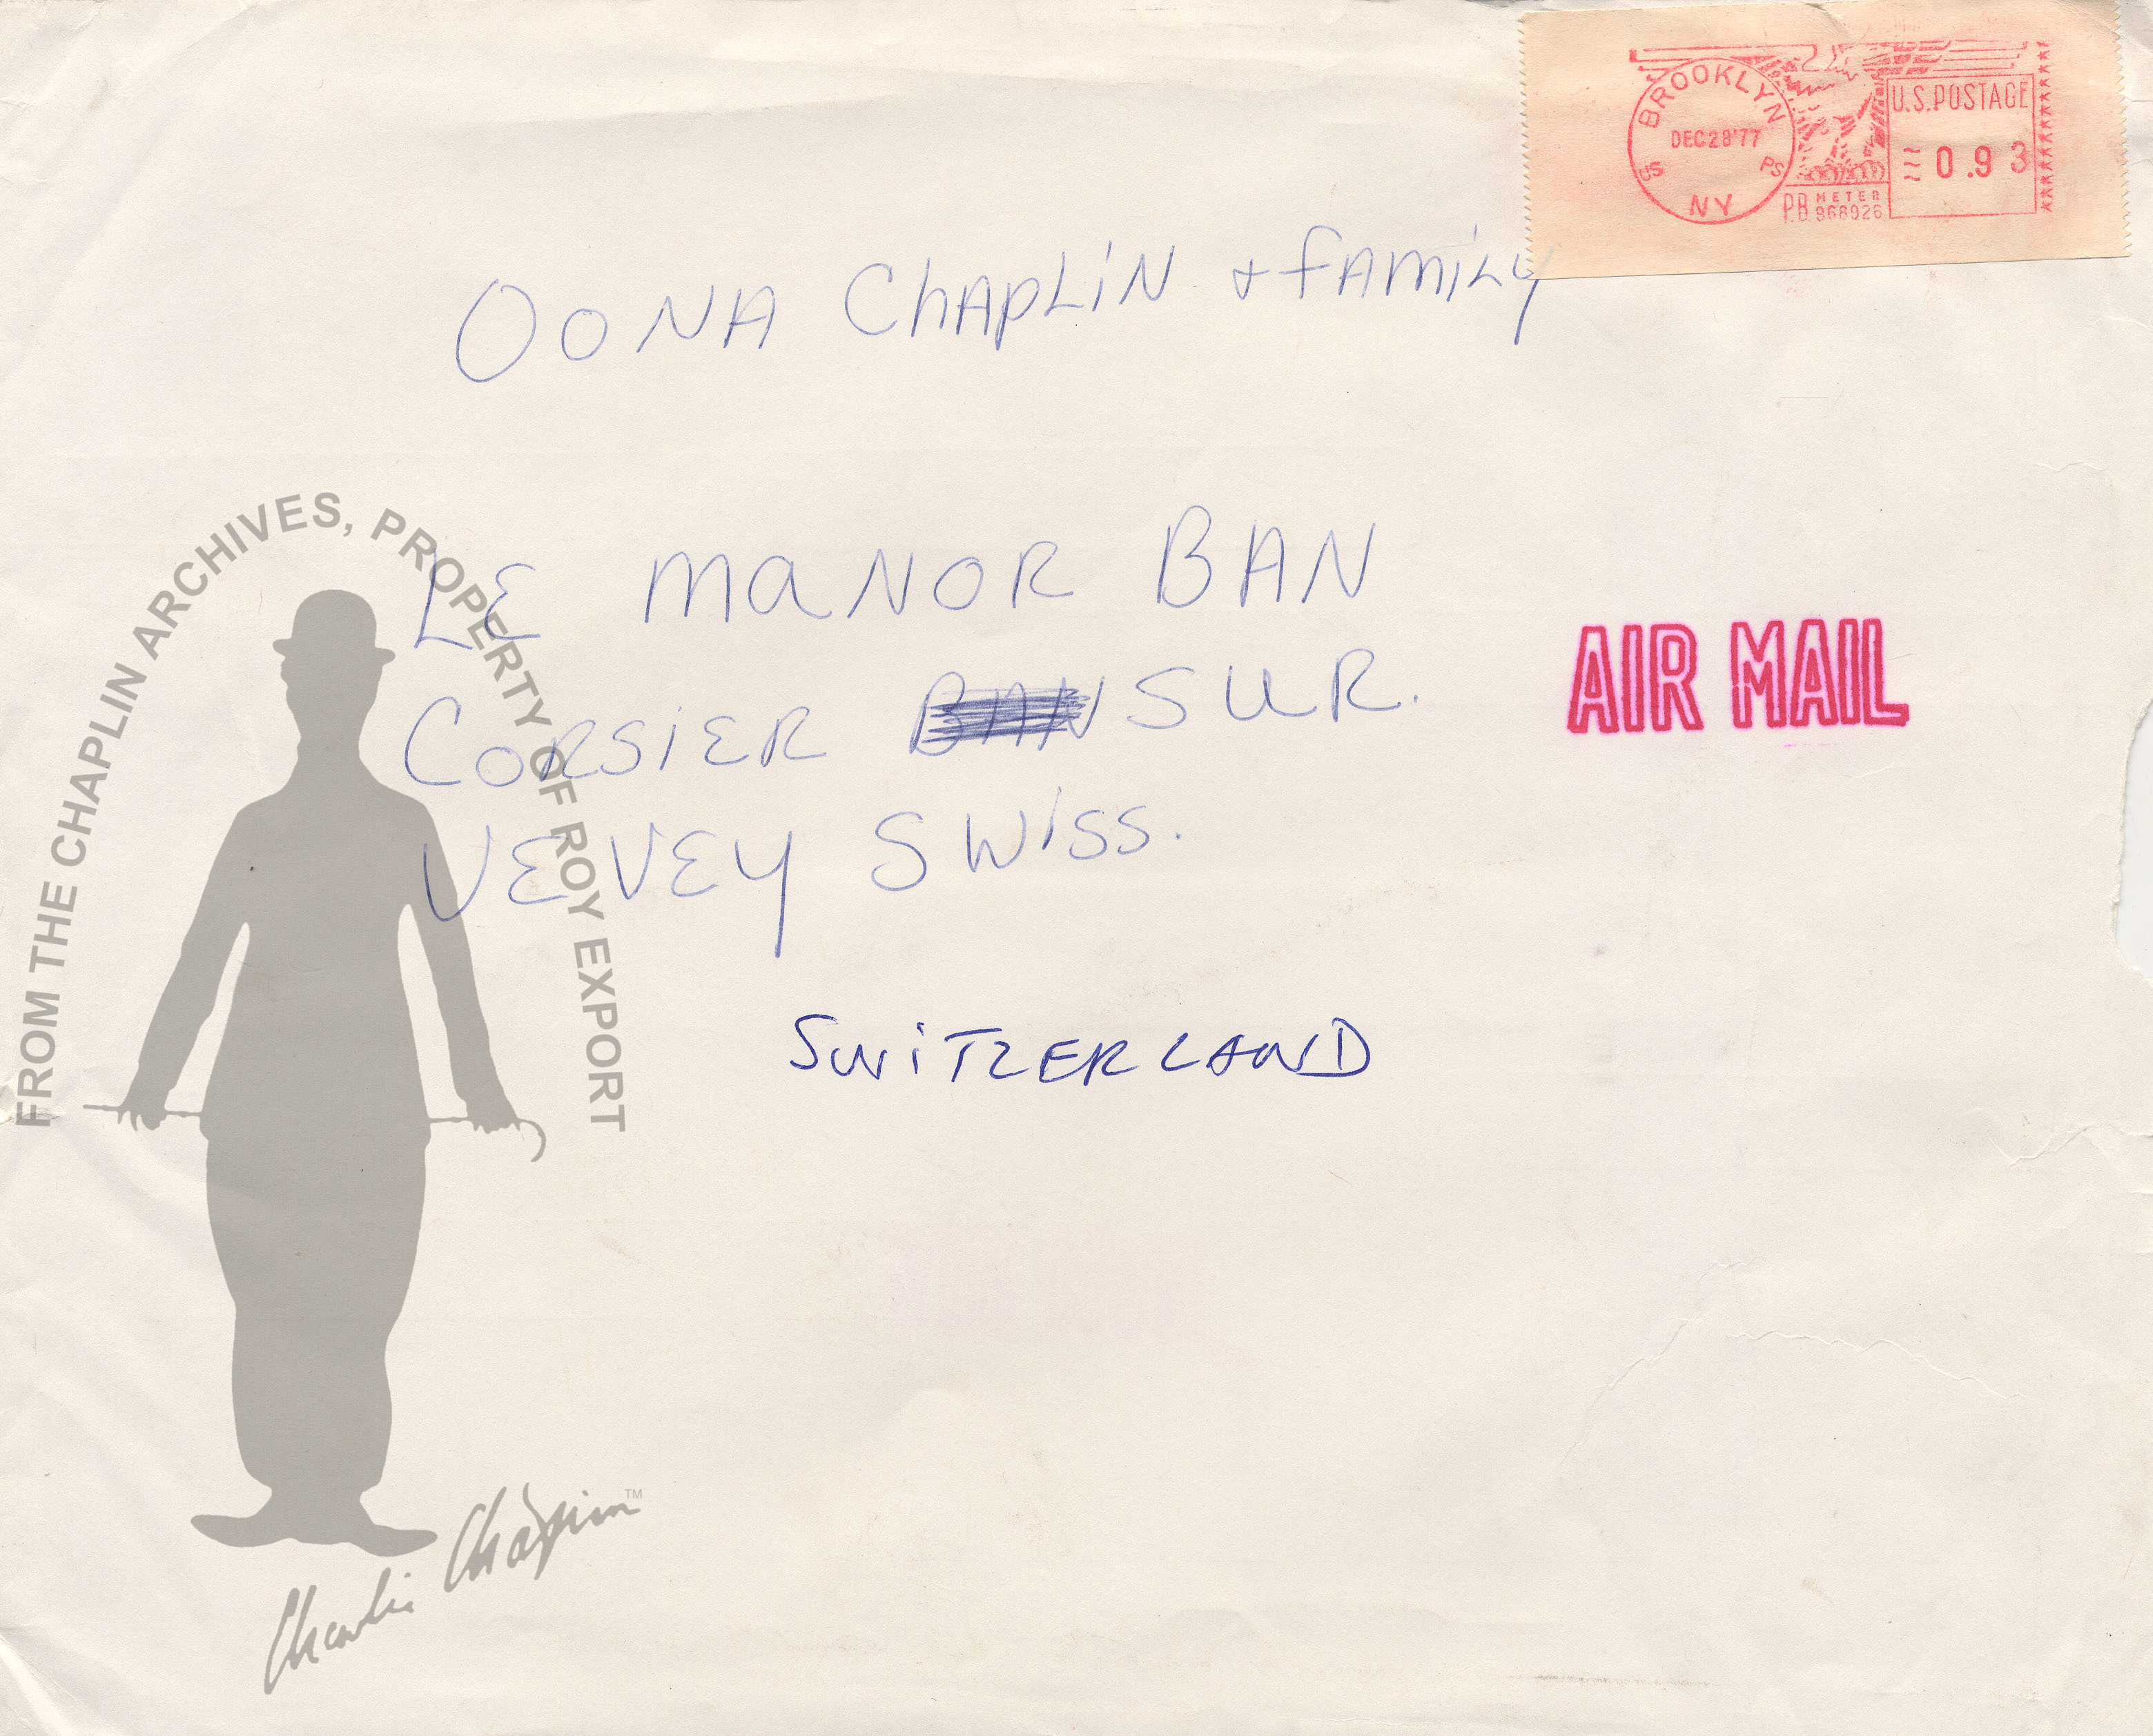 BROOKLYN
DEC 28 '77
US PS
NY
P.B. METER
968926
U.S. POSTAGE
0.93
OONA ChAPLiN + fAMiLy
LE MANOR BAN
CORSiER BAN SUR.
VEVEY SWiSS.
AIR MAIL
SWiTZERLAND
FROM THE CHAPLIN ARCHIVES, PROPERTY OF ROY EXPORT
Charlie Chaplin TM